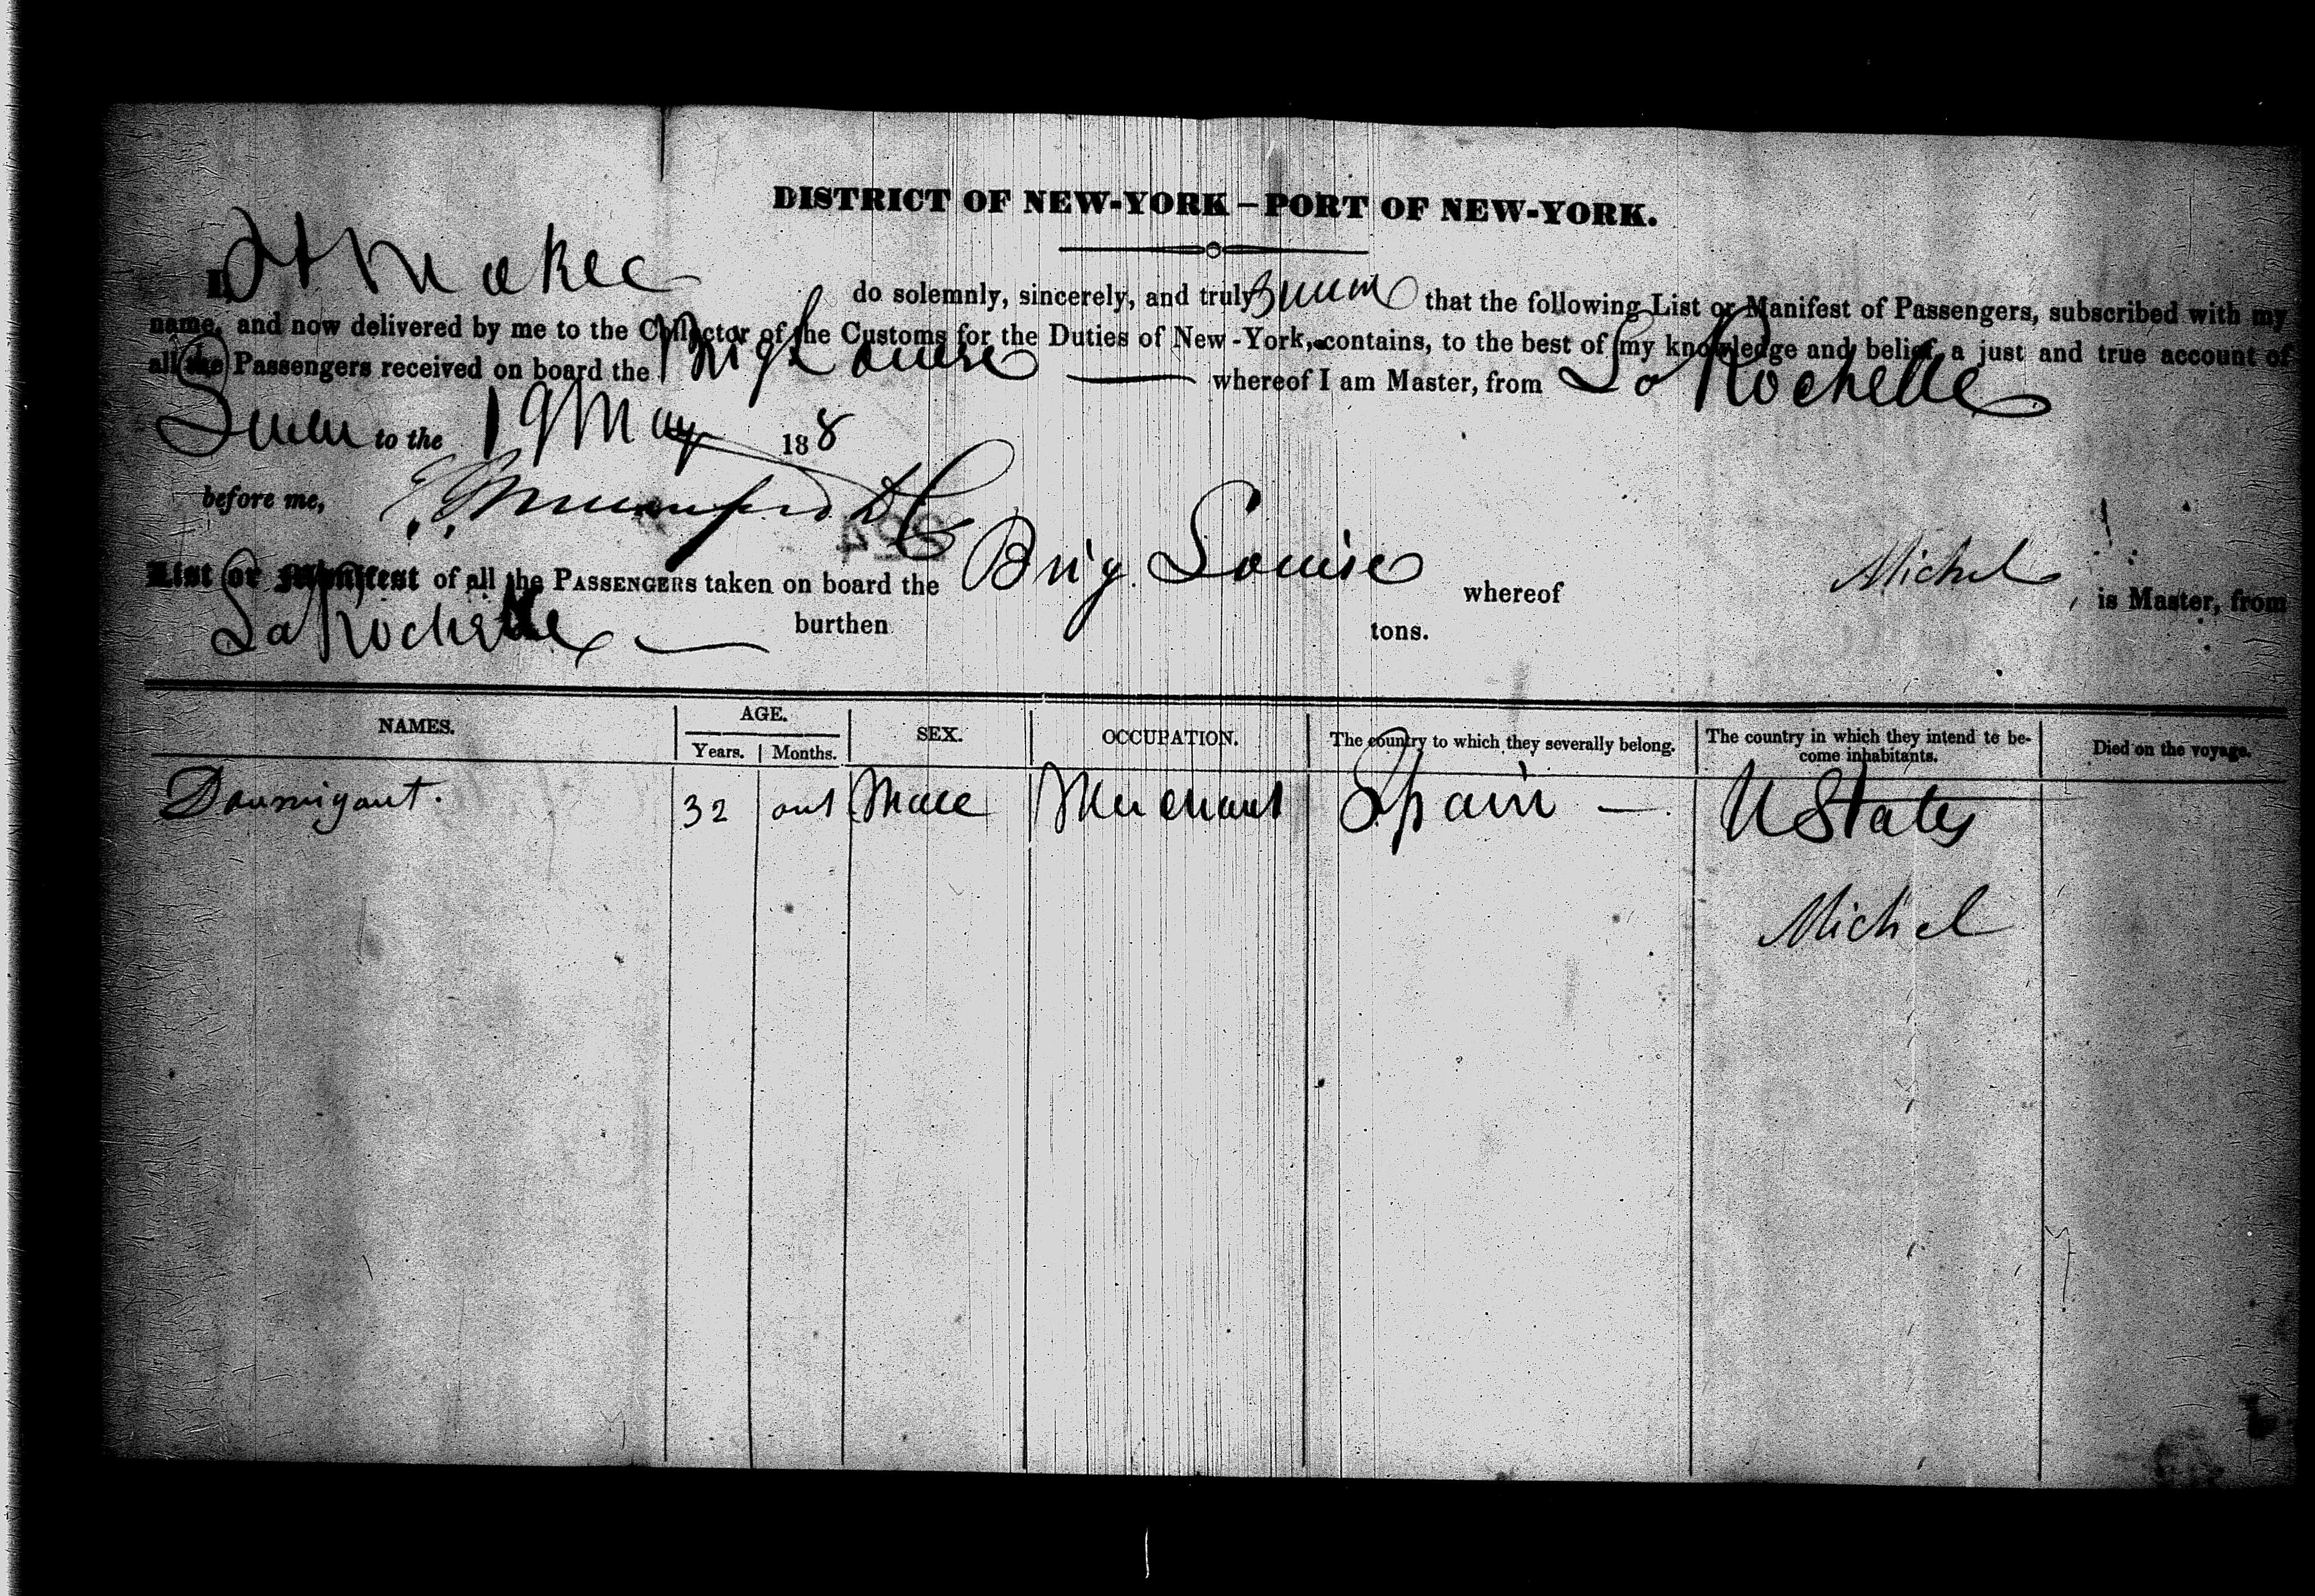 DISTRICT OF NEW-YORK – PORT OF NEW-YORK.
I, do solemnly, sincerely, and truly that the following List or Manifest of Passengers, subscribed with my
name, and now delivered by me to the Collector of the Customs for the Duties of New-York, contains, to the best of my knowledge and belief, a just and true account of
all the Passengers received on board the Brig Louise whereof I am Master, from La Rochelle
to the 19 May 188
before me,
List or Manifest of all the PASSENGERS taken on board the Brig Louise whereof Michel is Master, from
La Rochelle burthen tons.
NAMES. AGE. SEX. OCCUPATION. The country to which they severally belong. The country in which they intend to be-come inhabitants. Died on the voyage.
Years. Months.
32 Male Merchant Spain – U States
Michel